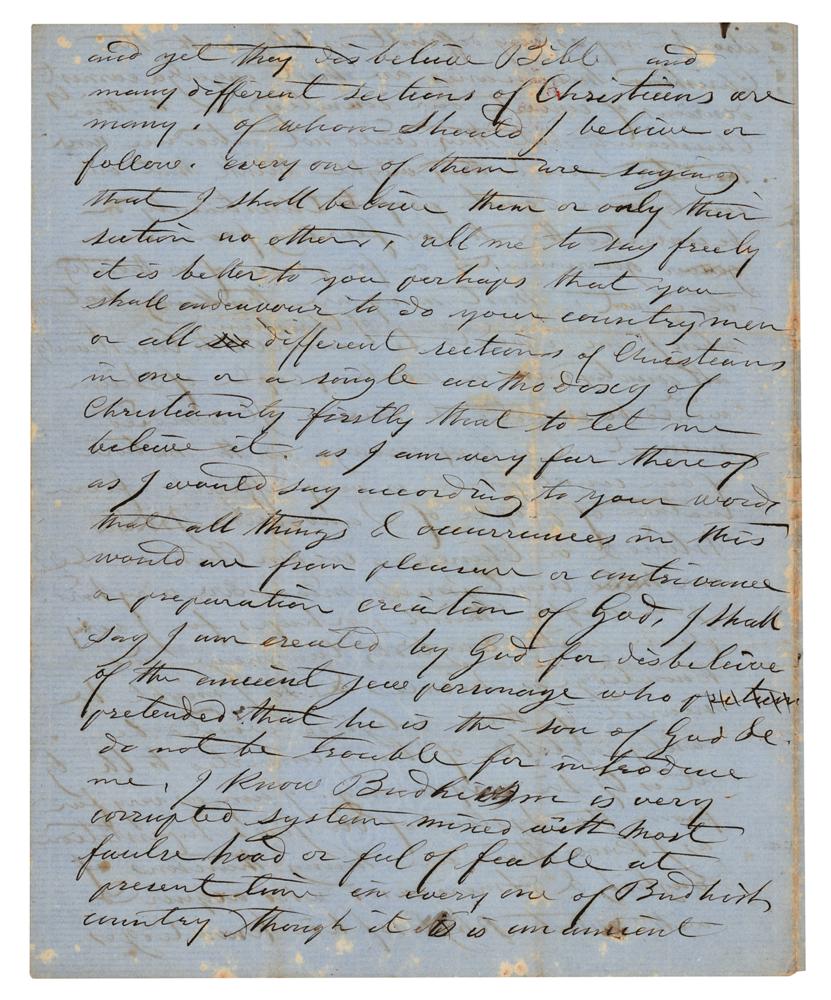 and yet they disbelieve Bible and
many different sections of Christians are
many. of whom should I believe or
follow. every one of them are saying
that I shall believe them or only their
section no others, all me to say freely
it is better to you perhaps that you
shall endeavour to do your countrymen
or all different sections of Christians
in one or a single authodoxy of
Christianity firstly that to let me
believe it. as I am very far thereof
as I would say according to your words
that all things & occurrances in this
would are from pleasure or contrivance
or preparation creation of God, I shall
say I am created by God for disbelieve
of the ancient jew personage who
pretended that he is the son of God &c.
do not be trouble for introduce
me, I know Budhism is very
corrupted system mixed with most
faulse hood or ful of feable at
present time in every one of Budhist
country though it is is an ancient